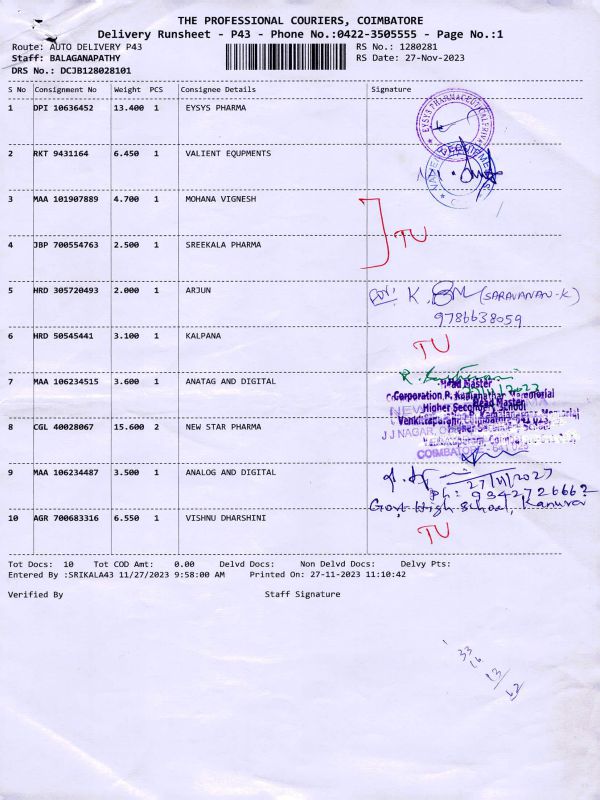 THE PROFESSIONAL COURIERS, COIMBATORE
Delivery Runsheet - P43 - Phone No.:0422-3505555 - Page No.:1
Route: AUTO DELIVERY P43 RS No.: 1280281
Staff: BALAGANAPATHY RS Date: 27-Nov-2023
DRS No.: DCJB128028101
S No Consignment No Weight PCS Consignee Details Signature
1 DPI 10636452 13.400 1 EYSYS PHARMA
EYSYS PHARMACEUTICAL
2 RKT 9431164 6.450 1 VALIENT EQUPMENTS
3 MAA 101907889 4.700 1 MOHANA VIGNESH
TU
4 JBP 700554763 2.500 1 SREEKALA PHARMA
5 HRD 305720493 2.000 1 ARJUN
K. (SARAVANAN-K)
9786638059
6 HRD 50545441 3.100 1 KALPANA TU
7 MAA 106234515 3.600 1 ANATAG AND DIGITAL
Head Master
Higher Secondary School
8 CGL 40028067 15.600 2 NEW STAR PHARMA
J J NAGAR,
COIMBATORE - 641
9 MAA 106234487 3.500 1 ANALOG AND DIGITAL
27/11/2023
Ph:
Govt High School,
10 AGR 700683316 6.550 1 VISHNU DHARSHINI TU
Tot Docs: 10 Tot COD Amt: 0.00 Delvd Docs: Non Delvd Docs: Delvy Pts:
Entered By :SRIKALA43 11/27/2023 9:58:00 AM Printed On: 27-11-2023 11:10:42
Verified By Staff Signature
33
16
13
62